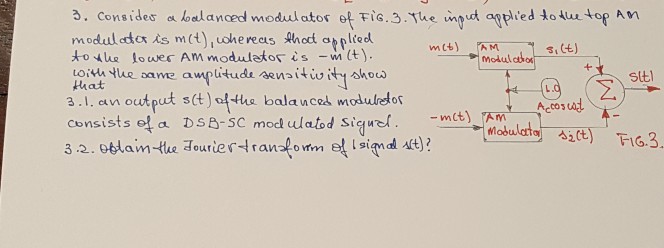 3. Consider a balanced modulator of FiG. 3. The input applied to the top AM
modulator is m(t), whereas that applied
to the lower AM modulator is -m(t).
With the same amplitude sensitivity show
that
3.1. an output s(t) of the balanced modulator
consists of a DSB-SC modulated signal.
3.2. obtain the Fourier transform of signal s(t)?
m(t)
AM
modulator
s₁(t)
+
Σ
s(t)
L.O
Accosωct
-m(t)
AM
Modulator
s₂(t)
-
FIG.3.